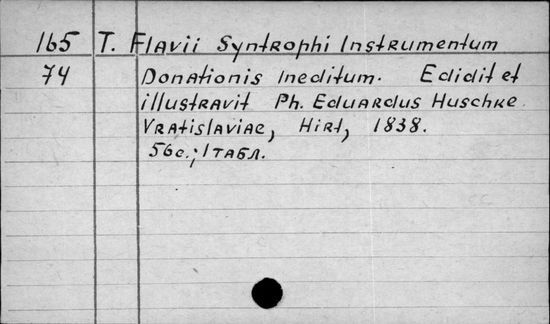 165 T. Flavii Syntrophi Instrumentum
74 Donationis ineditum. Edidit et
illustravit Ph. Eduardus Huschke.
Vratislaviae, Hirt, 1838.
56 с.; 1 табл.